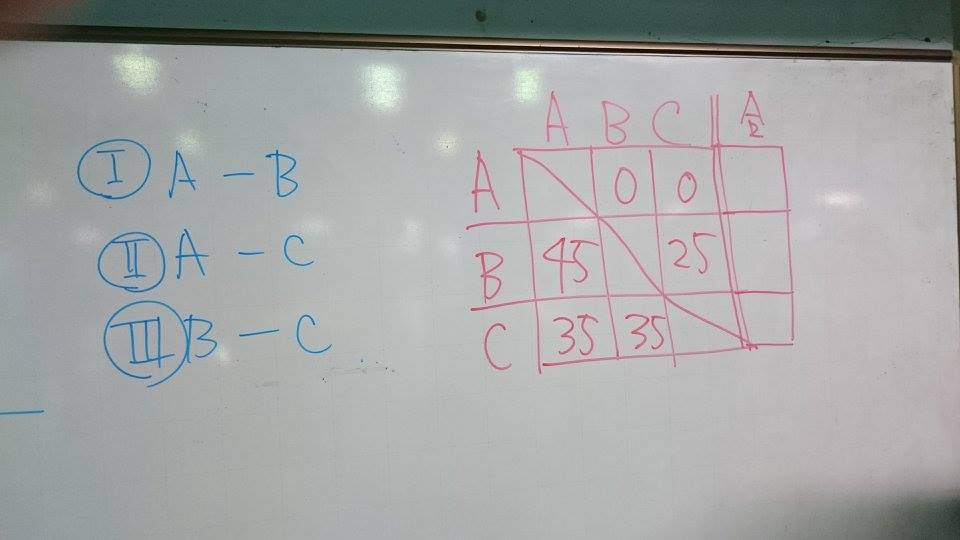 Ⅰ A - B
Ⅱ A - C
Ⅲ B - C
A B C
A 0 0
B 45 25
C 35 35